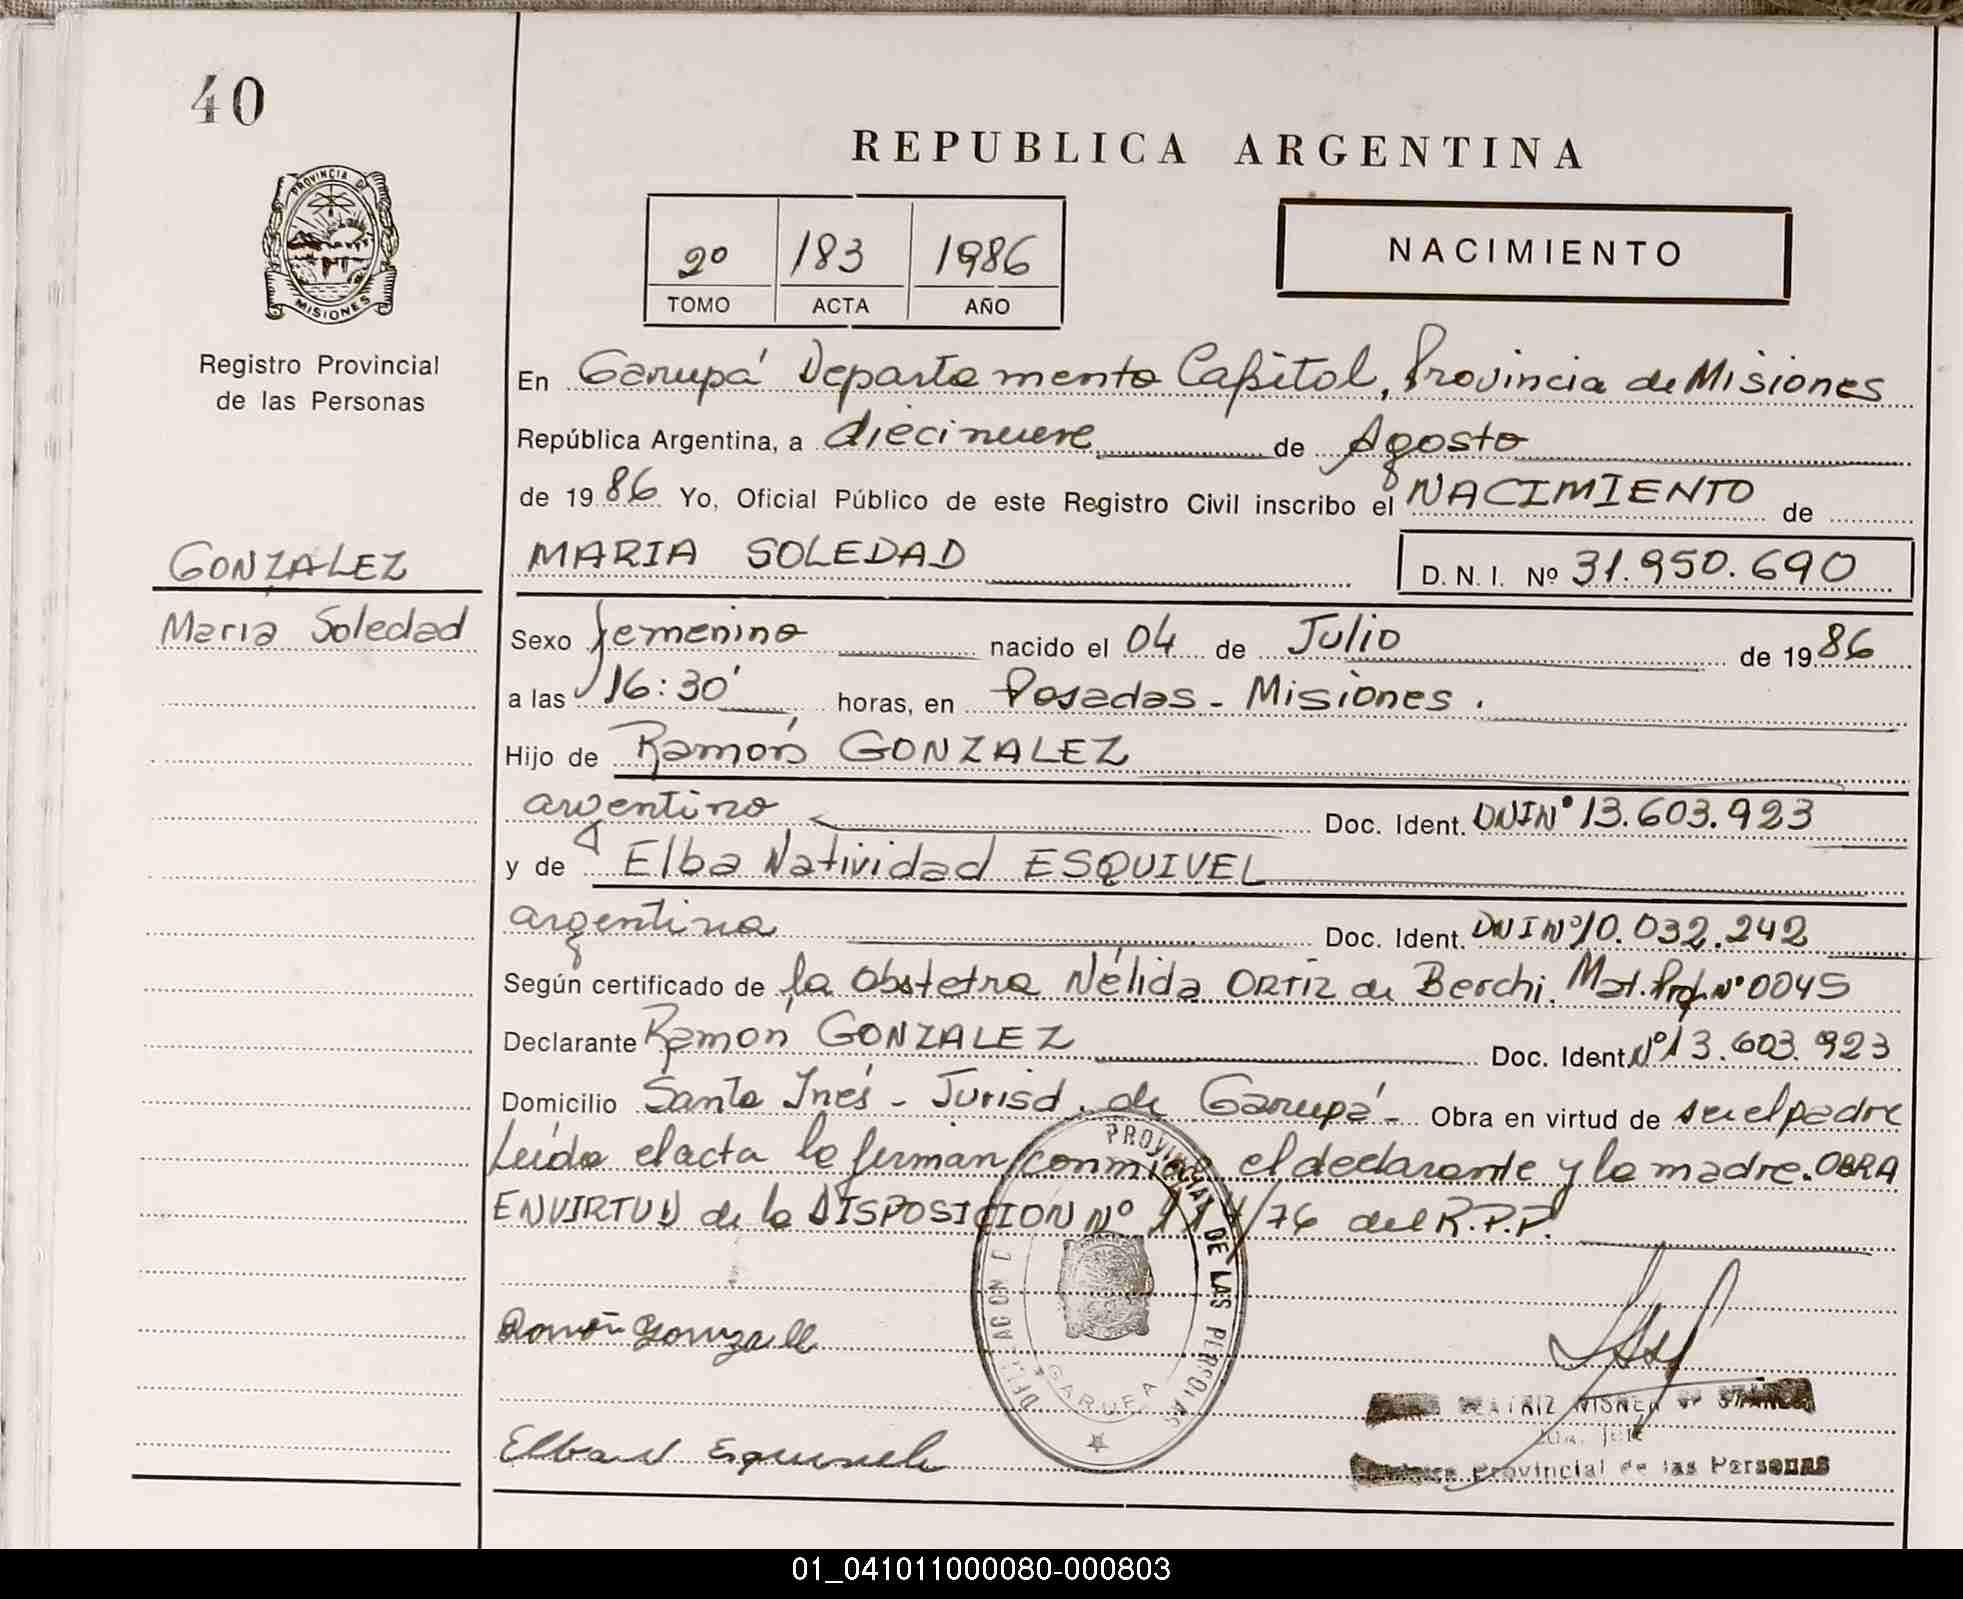 40
REPUBLICA ARGENTINA
PROVINCIA D
MISIONES
2º 183 1986
TOMO ACTA AÑO
NACIMIENTO
Registro Provincial
de las Personas
En Garupá Departamento Capital, Provincia de Misiones
República Argentina, a diecinueve de Agosto
de 1986 Yo, Oficial Público de este Registro Civil inscribo el NACIMIENTO de
GONZALEZ
Maria Soledad
MARIA SOLEDAD D. N. I. Nº 31.950.690
Sexo femenino nacido el 04 de Julio de 1986
a las 16:30' horas, en Posadas - Misiones.
Hijo de Ramón GONZALEZ
argentino Doc. Ident. DNI Nº 13.603.923
y de Elba Natividad ESQUIVEL
argentina Doc. Ident. DNI Nº 10.032.242
Según certificado de la Obstetra Nélida ORTIZ de Berchi. Mat. Prof. Nº 0045
Declarante Ramón GONZALEZ Doc. Ident. Nº 13.603.923
Domicilio Santa Inés - Jurisd. de Garupá - Obra en virtud de ser el padre
Leída el acta la firman conmigo el declarante y la madre. OBRA
EN VIRTUD de la DISPOSICION Nº 114/76 del R.P.P.
PROVINCIAL DE LAS PERSONAS
GARUPA
Ramón Gonzalez
Elba N Esquivel
BEATRIZ
Provincial de las Personas
01_041011000080-000803